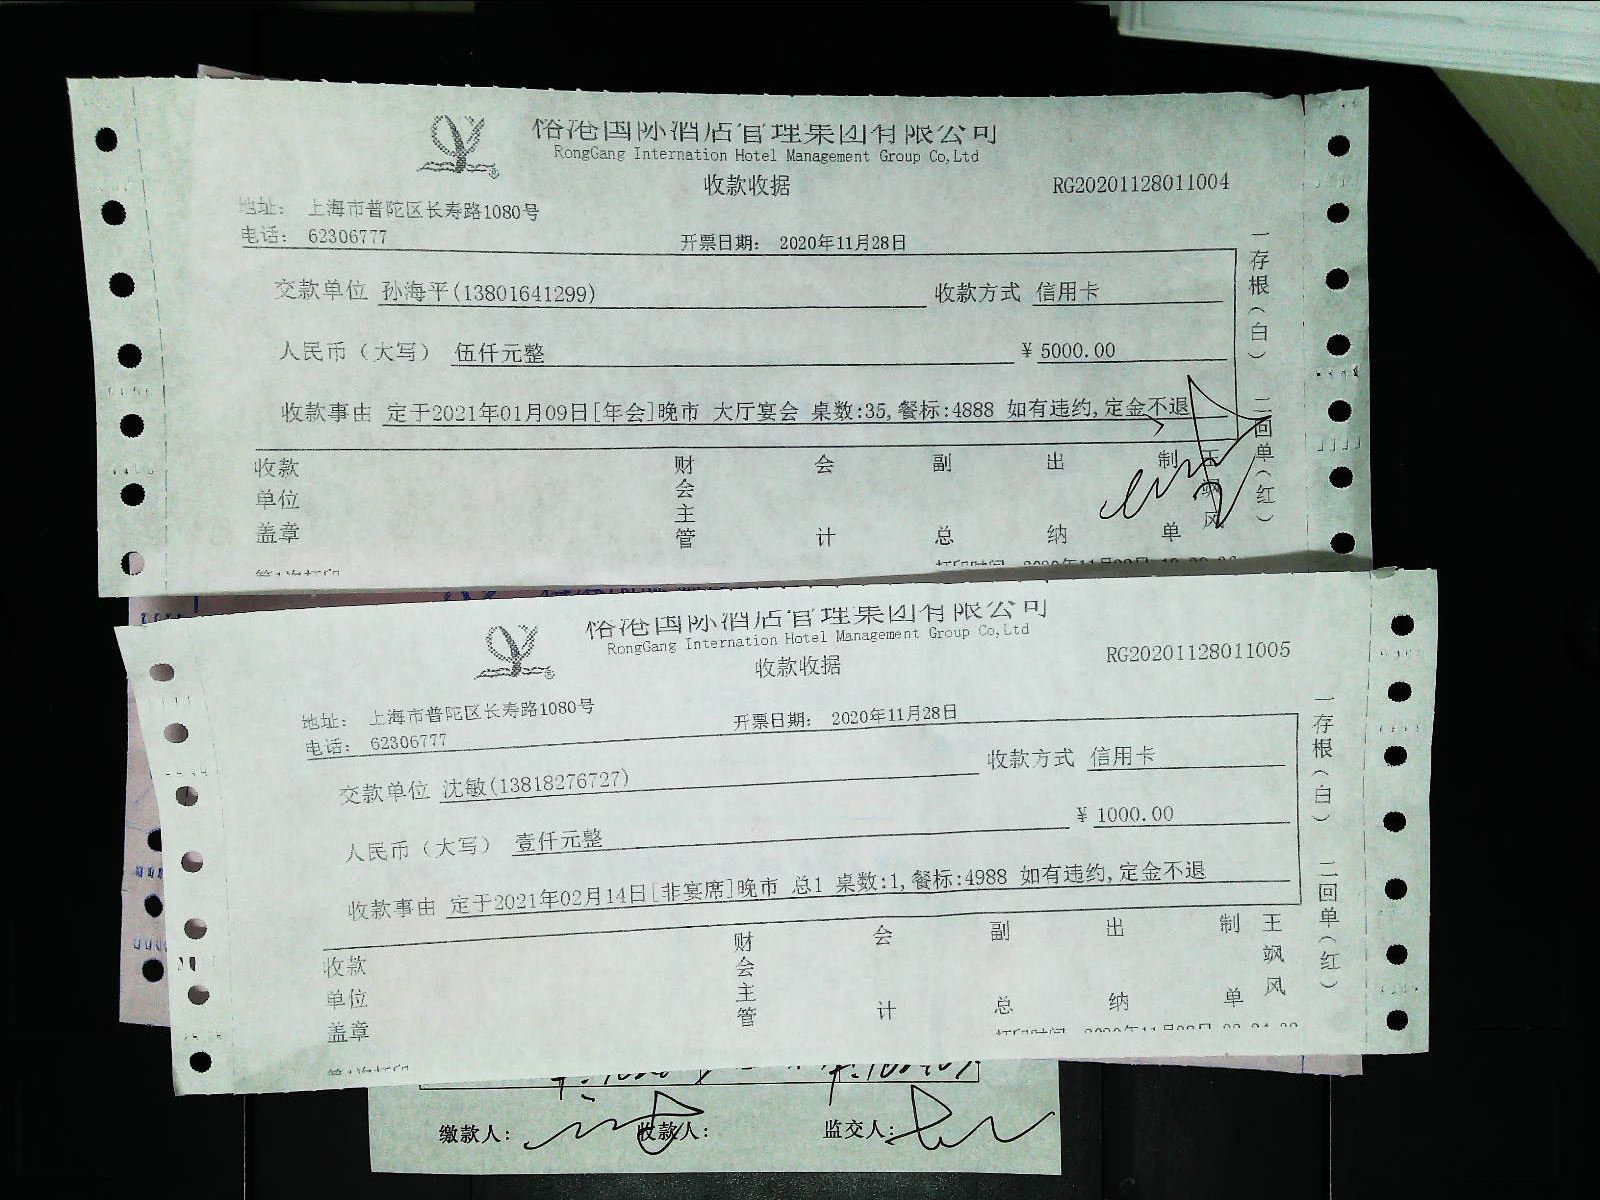 榕港国际酒店管理集团有限公司
RongGang Internation Hotel Management Group Co,Ltd
收款收据
RG20201128011004
地址： 上海市普陀区长寿路1080号
电话： 62306777
开票日期： 2020年11月28日
交款单位 孙海平(13801641299) 收款方式 信用卡
人民币（大写） 伍仟元整 ¥ 5000.00
收款事由 定于2021年01月09日[年会]晚市 大厅宴会 桌数:35,餐标:4888 如有违约,定金不退
收款单位盖章 财会主管 会计 副总 出纳 制单 王飒风
一存根（白） 二回单（红）
第1次打印
榕港国际酒店管理集团有限公司
RongGang Internation Hotel Management Group Co,Ltd
收款收据
RG20201128011005
地址： 上海市普陀区长寿路1080号
电话： 62306777
开票日期： 2020年11月28日
交款单位 沈敏(13818276727) 收款方式 信用卡
人民币（大写） 壹仟元整 ¥ 1000.00
收款事由 定于2021年02月14日[非宴席]晚市 总1 桌数:1,餐标:4988 如有违约,定金不退
收款单位盖章 财会主管 会计 副总 出纳 制单 王飒风
一存根（白） 二回单（红）
第1次打印
缴款人： 收款人： 监交人：